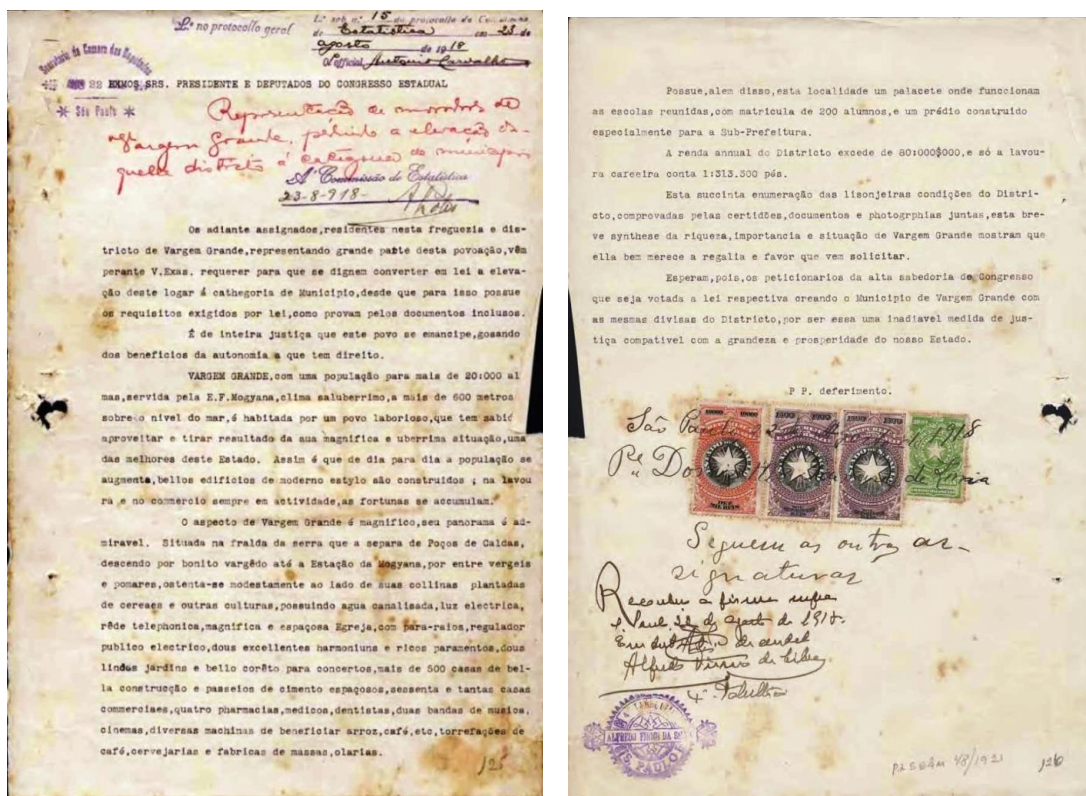 L.º no protocollo geral
L.º sob n.º 15 do protocollo da Commissão
de Estatistica em 23 de
agosto de 1918
O official, Antonio Carvalho
Secretaria da Camara dos Deputados
22
São Paulo
EXMOS. SRS. PRESIDENTE E DEPUTADOS DO CONGRESSO ESTADUAL
Representação de moradores de
Vargem Grande, pedindo a elevação da-
quelle districto á categoria de municipio
A' Commissão de Estatistica
23-8-918-
Os adiante assignados,residentes nesta freguezia e dis-
tricto de Vargem Grande,representando grande parte desta povoação,vêm
perante V.Exas. requerer para que se dignem converter em lei a eleva-
ção deste logar á cathegoria de Municipio,desde que para isso possue
os requisitos exigidos por lei,como provam pelos documentos inclusos.
É de inteira justiça que este povo se emancipe,gosando
dos beneficios da autonomia a que tem direito.
VARGEM GRANDE,com uma população para mais de 20:000 al
mas,servida pela E.F.Mogyana,clima saluberrimo,a mais de 600 metros
sobre o nivel do mar,é habitada por um povo laborioso,que tem sabid
aproveitar e tirar resultado da sua magnifica e uberrima situação,uma
das melhores deste Estado. Assim é que de dia para dia a população se
augmenta,bellos edificios de moderno estylo são construidos ; na lavou
ra e no commercio sempre em actividade,as fortunas se accumulam.
O aspecto de Vargem Grande é magnifico,seu panorama é ad-
miravel. Situada na fralda da serra que a separa de Poços de Caldas,
descendo por bonito vargêdo até a Estação da Mogyana,por entre vergeis
e pomares,ostenta-se modestamente ao lado de suas collinas plantadas
de cereaes e outras culturas,possuindo agua canalisada,luz electrica,
rêde telephonica,magnifica e espaçosa Egreja,com para-raios,regulador
publico electrico,dous excellentes harmoniuns e ricos paramentos,dous
lindos jardins e bello corêto para concertos,mais de 500 casas de bel-
la construcção e passeios de cimento espaçosos,sessenta e tantas casas
commerciaes,quatro pharmacias,medicos,dentistas,duas bandas de musica,
cinemas,diversas machinas de beneficiar arroz,café,etc,torrefações de
café,cervejarias e fabricas de massas,olarias.
125
Possue,alem disso,esta localidade um palacete onde funccionam
as escolas reunidas,com matricula de 200 alumnos,e um prédio construido
especialmente para a Sub-Prefeitura.
A renda annual do Districto excede de 80:000$000,e só a lavou-
ra caféeira conta 1:313.500 pés.
Esta succinta enumeração das lisonjeiras condições do Distri-
cto,comprovadas pelas certidões,documentos e photogrphias juntas,esta bre-
ve synthese da riqueza,importancia e situação de Vargem Grande mostram que
ella bem merece a regalia e favor que vem solicitar.
Esperam,pois,os peticionarios da alta sabedoria do Congresso
que seja votada a lei respectiva creando o Municipio de Vargem Grande com
as mesmas divisas do Districto,por ser essa uma inadiavel medida de jus-
tiça compativel com a grandeza e prosperidade do nosso Estado.
P P. deferimento.
São Paulo, 1918
Seguem as outras as-
signaturas
Reconheço a firma supra
S. Paulo, 22 de agosto de 1918.
Em da verdade
4º Tabellião
S. PAULO
126